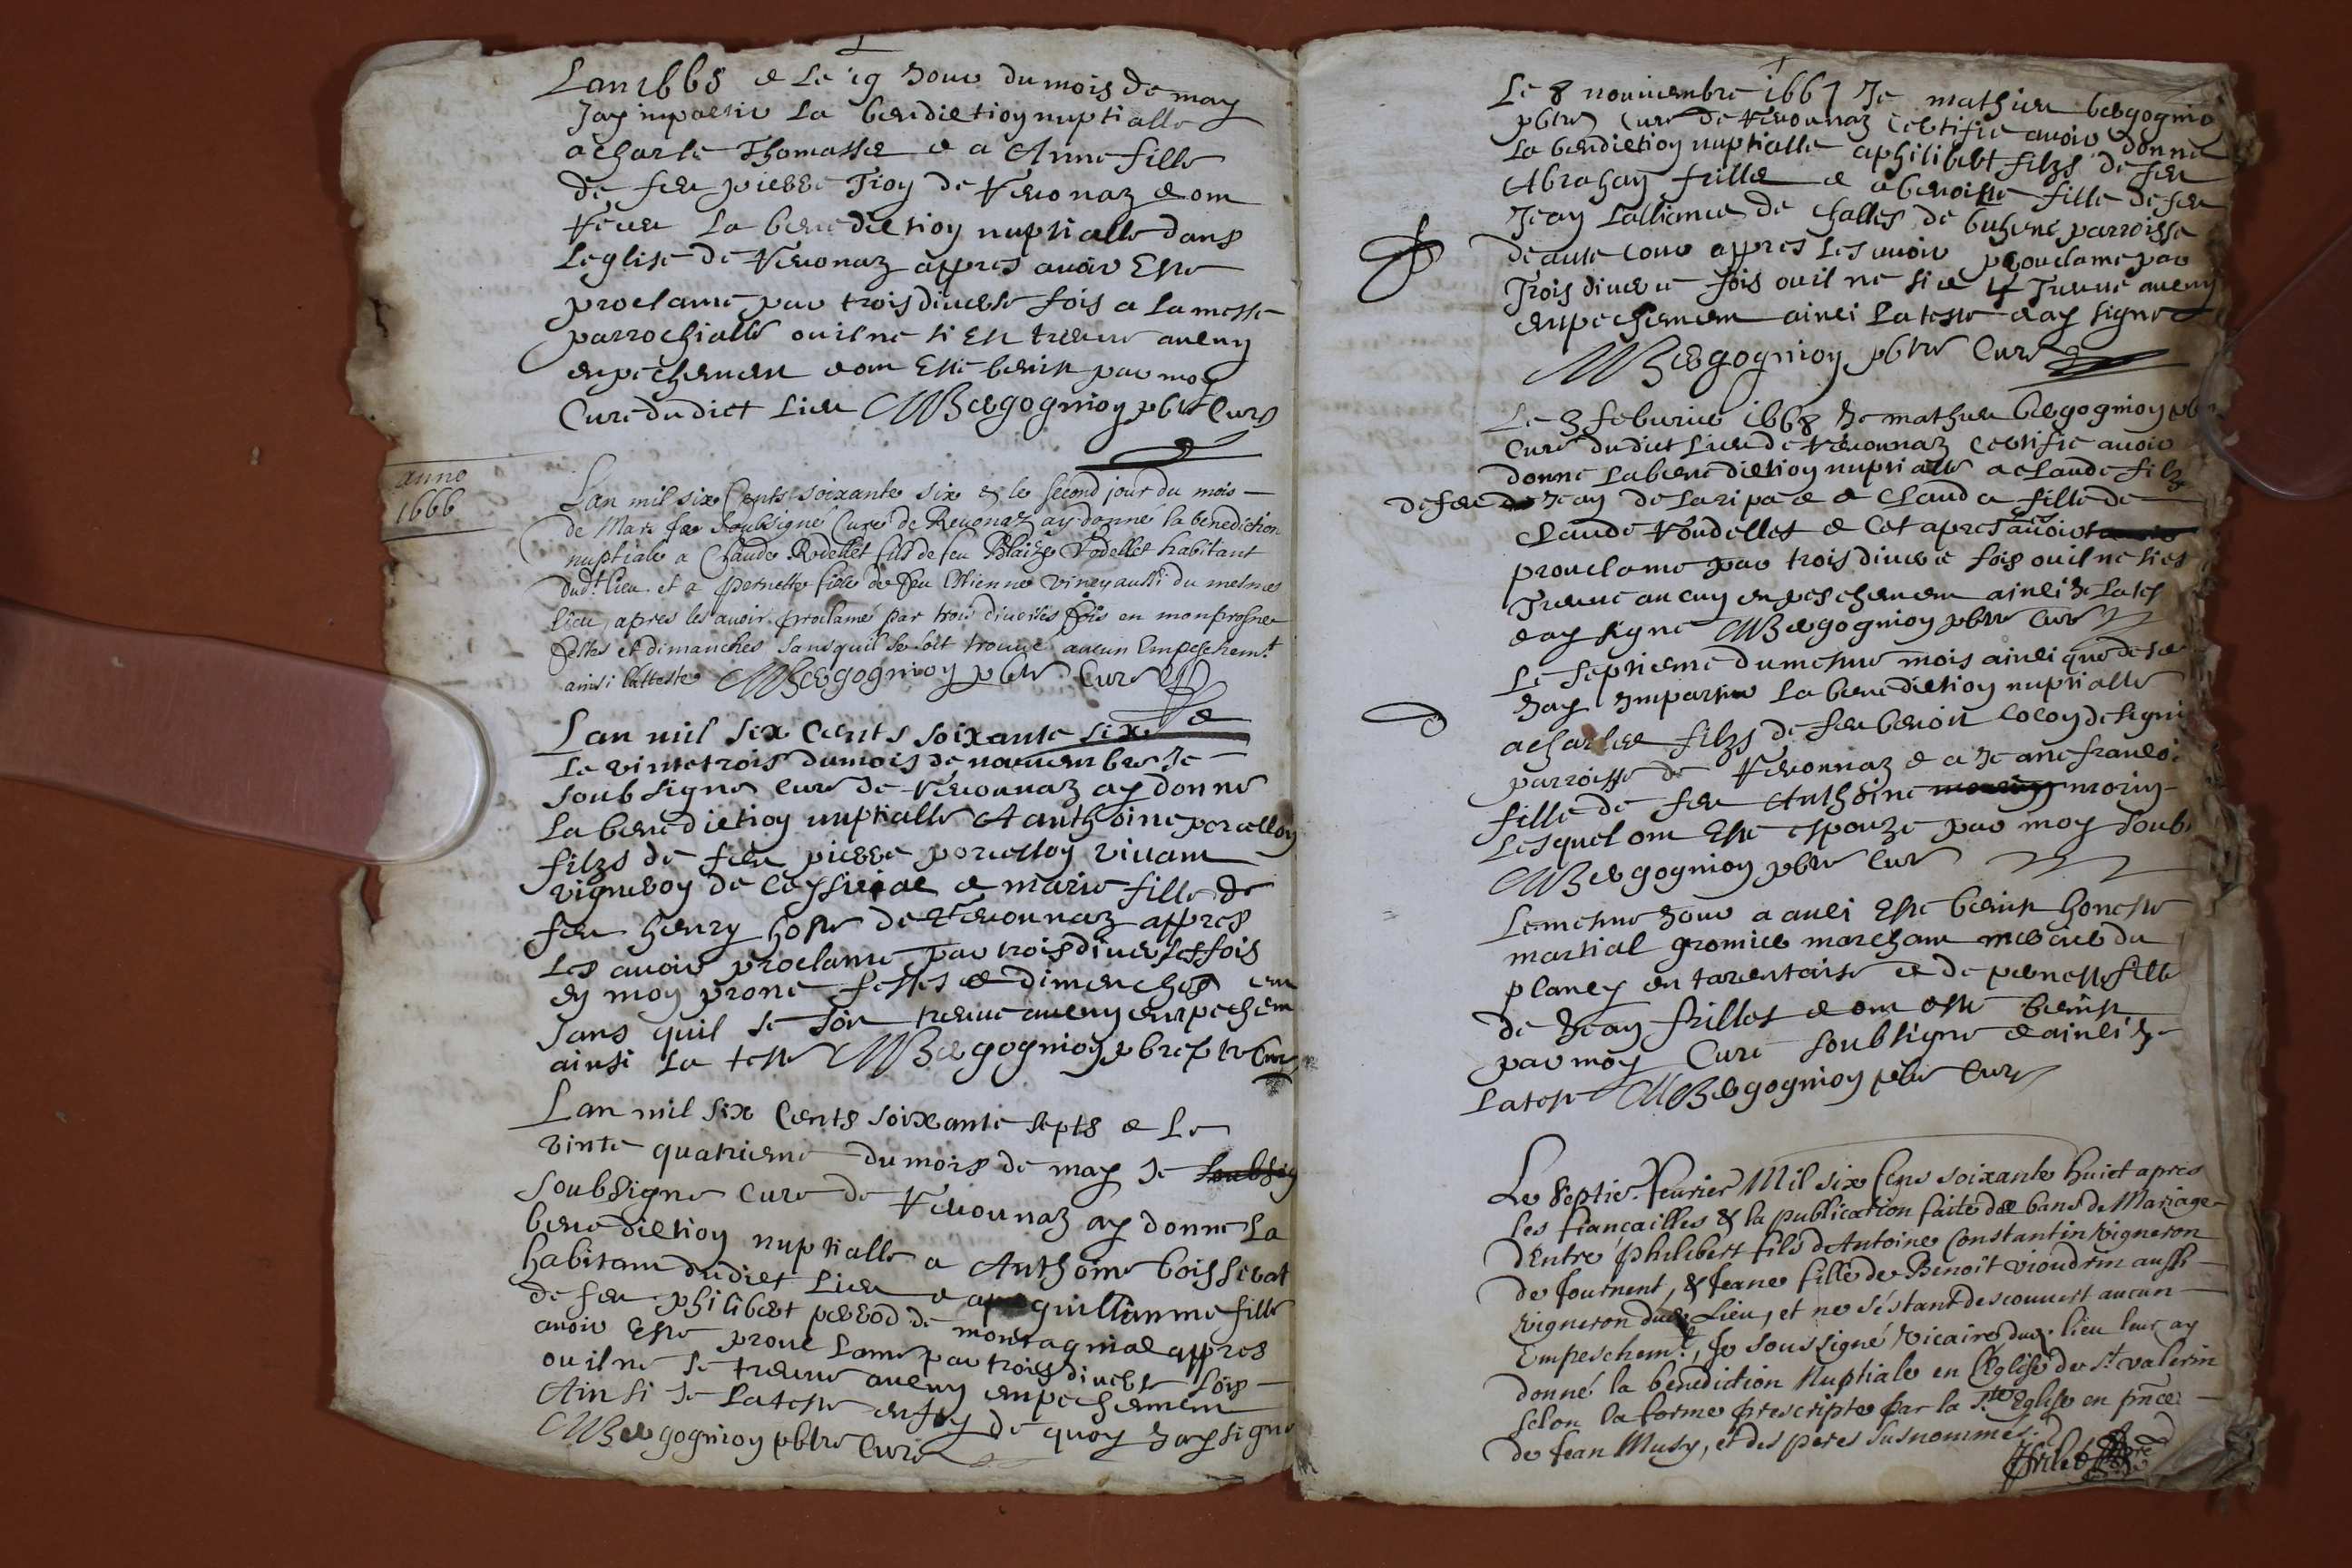 Lan 1665 e Le 19 Jour du mois de may
Jay imparti La benedietion nuptialle
a charle Thomasse e a Anne fille
de feu pierre de Reuonaz e ont
La benedietion nuptialle dans
Leglise de Reuonaz appres auoir Este
proclame par trois diuerse fois a la messe
parrochialle ou il ne si Est treuue aucun
enpechement e ont Este benist par moy
Cure du dict Lieu MBergognion pbre Cure
anno
1666
Lan mil six Cents soixante six & le second jour du mois
de Mars Je Soubsigné Curé de Reuonaz ay donné la benediction
nuptiale a Claude Rodellet fils de feu Blaize Rodellet habitant
dud.t lieu et a pernette fille de feu Estienne viney aussi du mesme
lieu, apres les auoir proclamé par trois diuerses fois en mon prosne
festes et dimanches sans quil se soit trouué aucun Empeschem.t
ainsi latteste MBergognion pbre Cure
Lan mil six Cents soixante six e
Le vintetrois du mois de nouuembre Je
soubsigne Cure de Reuonnaz ay donne
La benedietion nuptialle A anthoine porcellon
filzs de feu pierre porcellon viuant
vigneron de e marie fille de
feu henry hoste de Reuonnaz appres
Les auoir proclame par trois diuerses fois
en mon prone festes e dimenches
sans quil se soit treuue aucun enpechem
ainsi La teste MBergognion pbre Cure
Lan mil six Cents soixante septs e Le
vinte quatrieme du mois de may Je soubsig
soubsigne Cure de Reuonnaz ay donne La
benedietion nuptialle a Anthoine boisserat
habitant dudict Lieu e a guillaumme fille
de feu philibert perrod de montagniae appres
auoir Este prouclame par trois diuerse fois
ou il ne se treuue aucun enpechement
Ainsi Je Lateste en foy de quoy Jay signe
MBergognion pbre Cure
Le 8 nouuembre 1667 Je mathieu bergognion
pbre Cure de Reuonnaz Certifie auoir donne
La benedietion nuptialle a philibert filzs de feu
Abraham frillet e a benoiste fille de feu
Jean Lalliance de Challes de parroisse
de aute Cour appres Les auoir prouclame par
Trois diuerse fois ou il ne si e Treuue aucun
enpechement ainsi Lateste e ay signe
MBergognion pbre Cure
Le 3 feburier 1668 Je mathieu bergognion pbre
Cure dudict Lieu de Reuonnaz Certifie auoir
donne La benedietion nuptialle a claude filz
de feu Jean de Laripae e Clauda fille de
Claude Roudellet e Cet apres auoir
prouclame par trois diuerse fois ou il ne si est
Treuue aucun enpeschement ainsi Je Latest
e ay signe MBergognion pbre Cure
Le septieme du mesme mois ainsi que desse
Jay Imparti La benedietion nuptialle
a charles filzs de feu benoit
parroisse de Reuonnaz e a Jeane francoi
fille de feu Anthoine morin
Lesquel ont Este espouze par moy soubs
MBergognion pbre Cure
Le mesme Jour a ausi Este benist honeste
martial gromier marchant mercier du
planey en tarentaise e de pernette fille
de Jean frillet e ont este benist
par moy Cure soubsigne e ainsi Je
Lateste MBergognion pbre Cure
Le Septie. feurier Mil six Cens soixante huict apres
les fiançailles & la publication faite des bans de Mariage
dEntre philebert fils dAntoine Constantin vigneron
de Journent, & Jeane fille de Benoît vioudrin aussi
vigneron dud. Lieu, et ne séstant descouuert aucun
Empeschem.t, Je soussigné vicaire dud. lieu leur ay
donné la bénédiction Nuptiale en l'Eglise de S.t valerin
selon la forme prescripte par la S.te Eglise en pnce
de Jean Musy, et des peres susnommés.